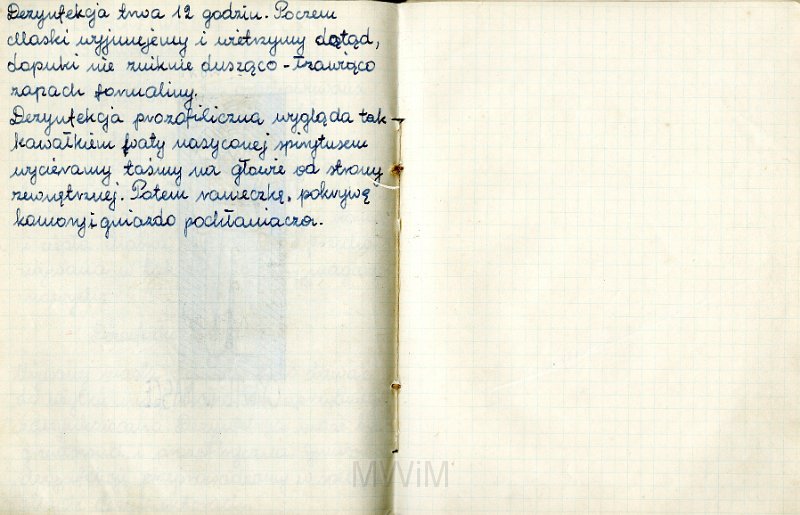 Dezynfekcja trwa 12 godzin. Poczem
Maski wyjmujemy i wietrzymy dotąd,
dopuki nie zniknie dusząco-łzawiąco
zapach formaliny.
Dezynfekcja profiliczna wygląda tak -
kawałkiem waty nasyconej spirytusem
wycieramy taśmy na głowie od strony
zewnętrznej. Potem rameczkę, pokrywę
komory i gniazdo pochłaniacza.
MWiM